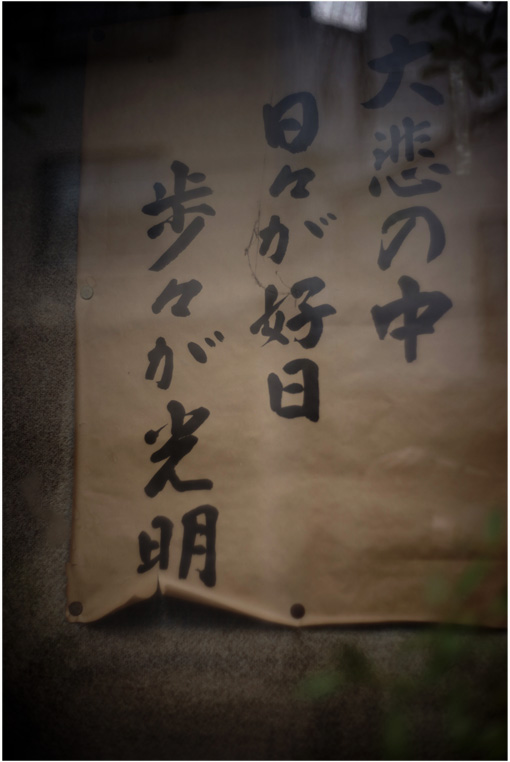 大悲の中
日々が好日
歩々が光明